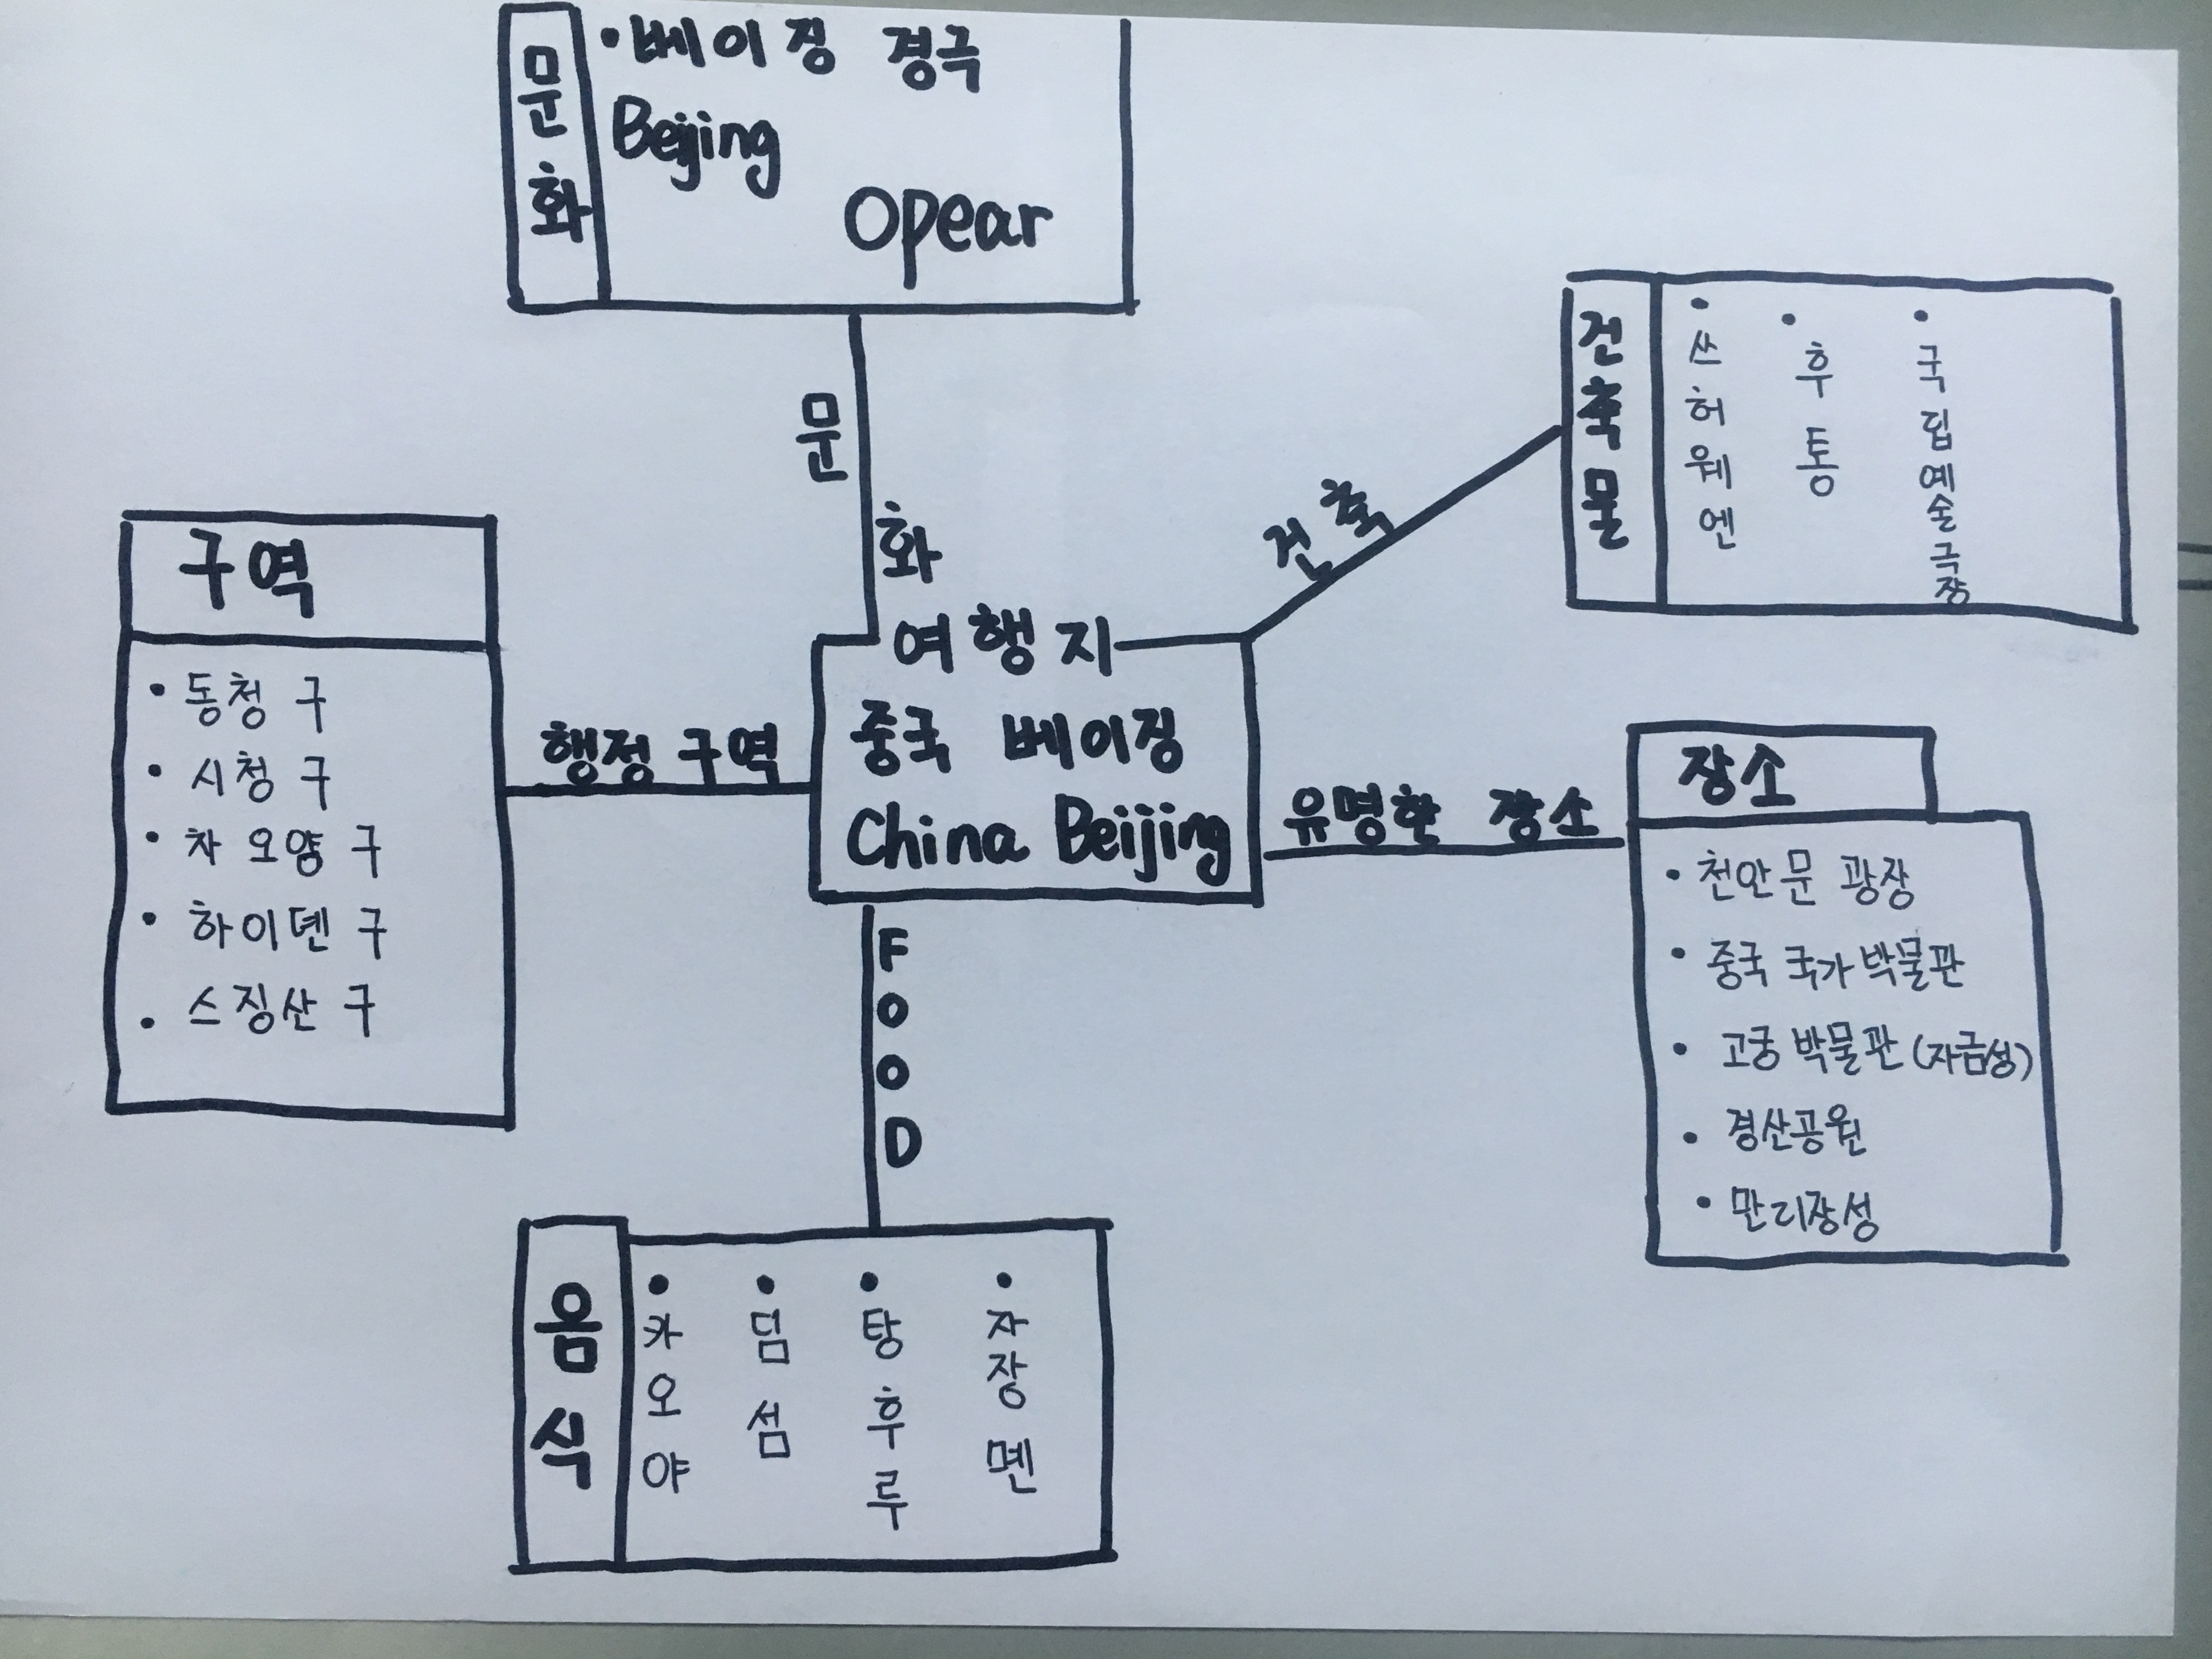 문화
• 베이징 경극
Beijing
Opear
문화
건축물
• 쓰허웨엔
• 후통
• 국립예술극장
건축
구역
• 동청 구
• 시청 구
• 차오양 구
• 하이뎬 구
• 스징산 구
행정 구역
여행지
중국 베이징
China Beijing
유명한 장소
장소
• 천안문 광장
• 중국 국가박물관
• 고궁박물관 (자금성)
• 경산공원
• 만리장성
FOOD
음식
• 카오야
• 딤섬
• 탕후루
• 자장몐